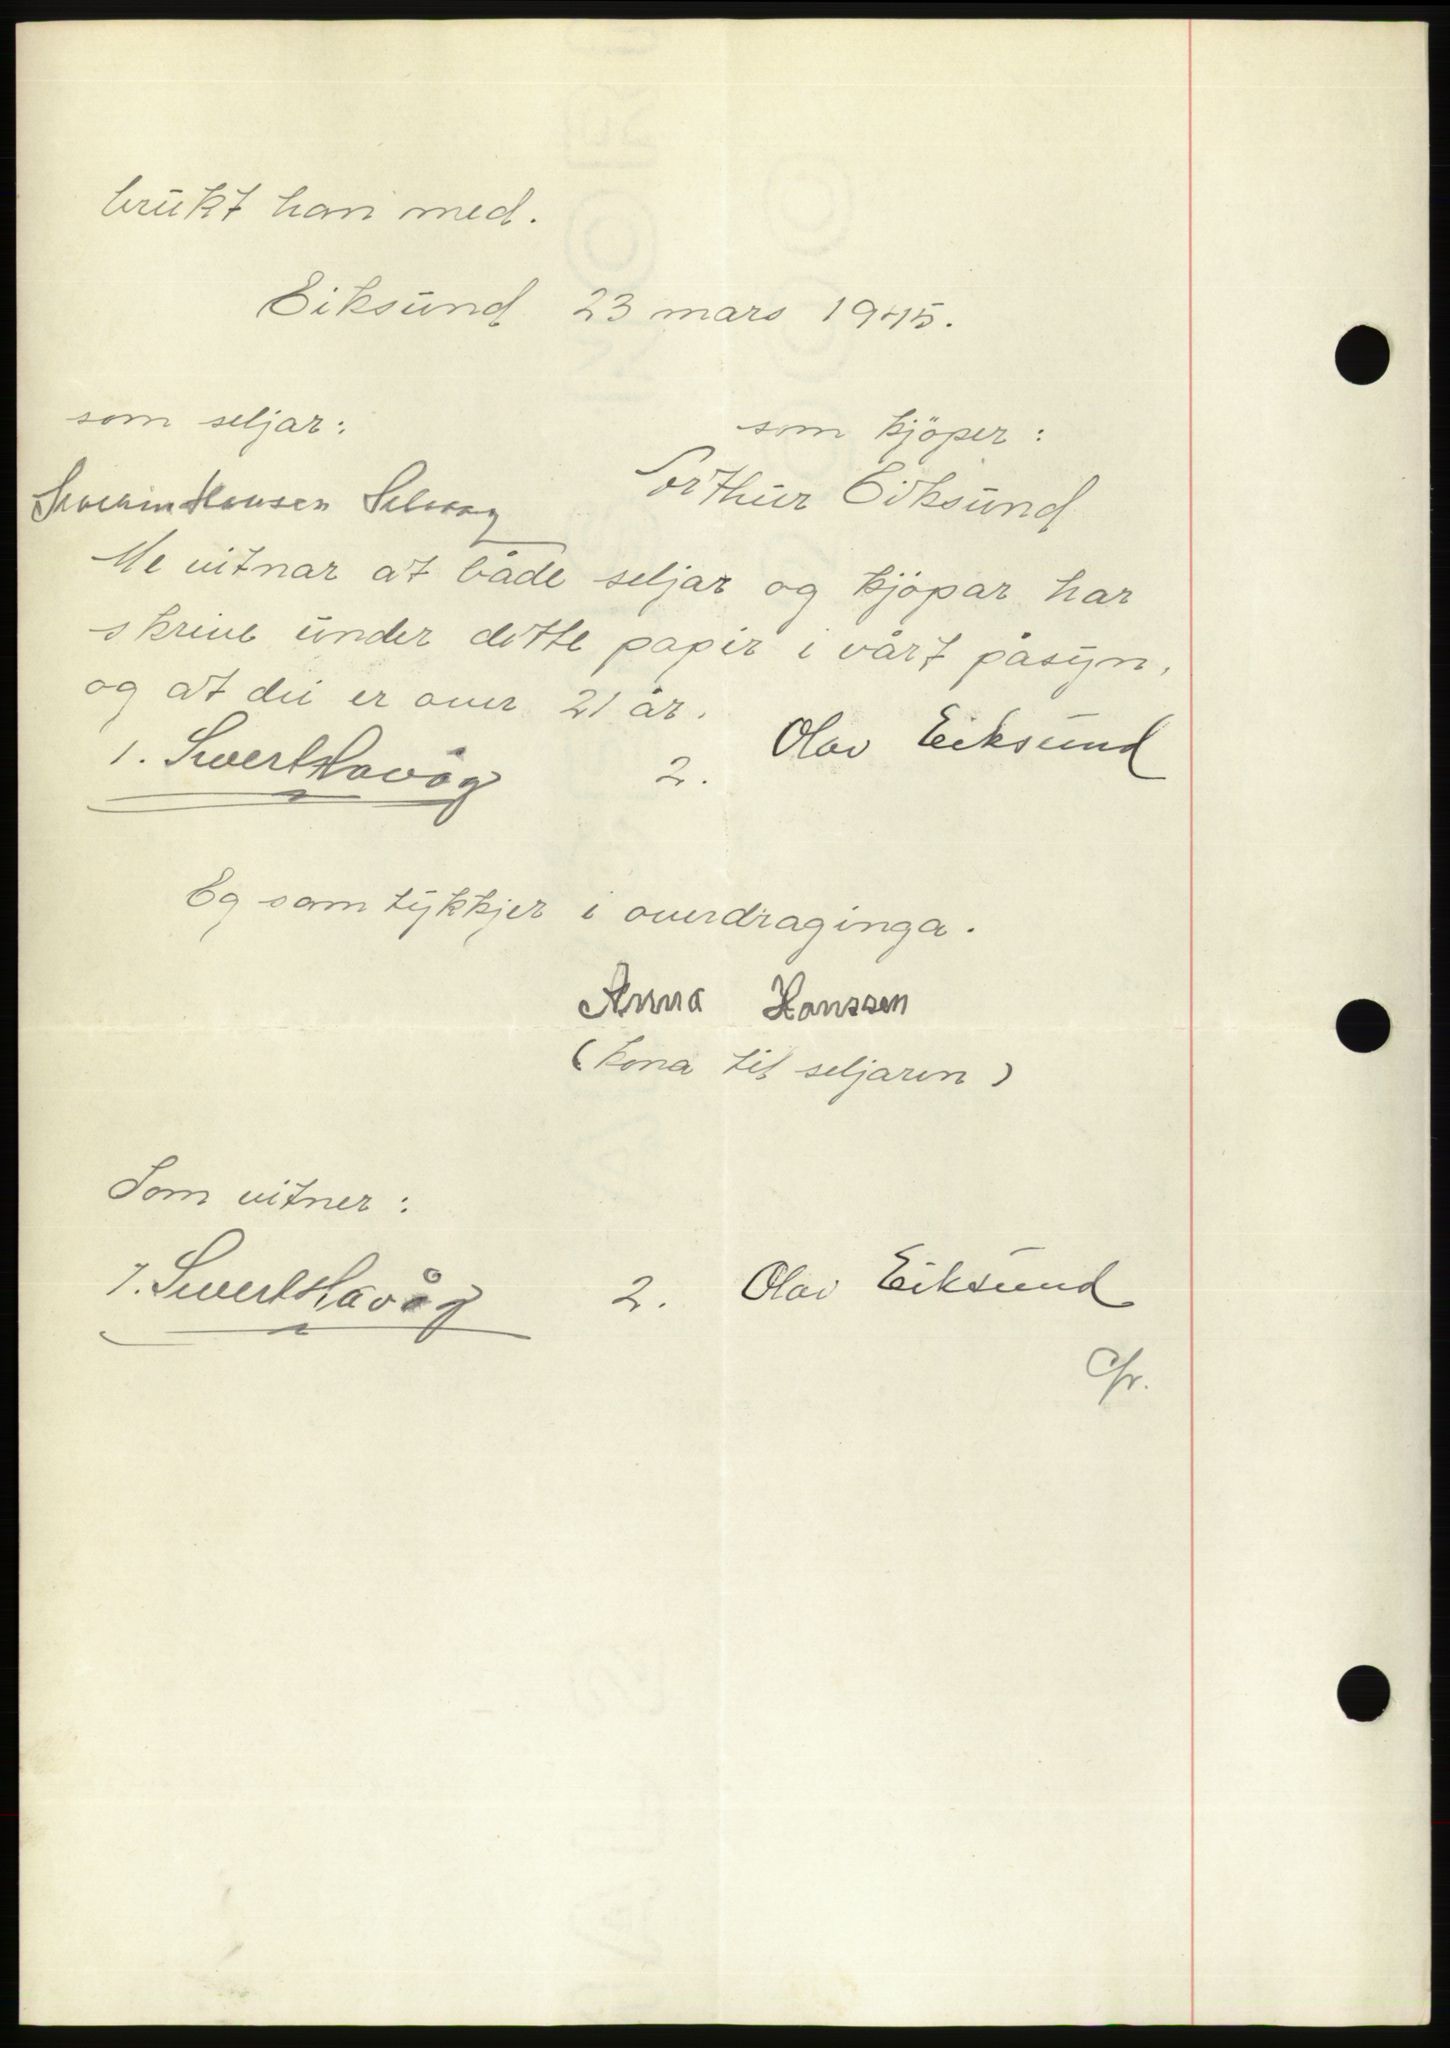 brukt han med.
Eiksund 23 mars 1945.
som seljar:
som kjöper:
Severin Hansen Selvaag
Torthur Eiksund
Me vitnar at både seljar og kjöpar har
skrive under dette papir i vårt påsyn,
og at dei er over 21 år.
1. Sivert Havåg
2. Olav Eiksund
Eg samtykkjer i overdraginga.
Anna Hanssen
(kona til seljaren)
Som vitner:
1. Sivert Havåg
2. Olav Eiksund